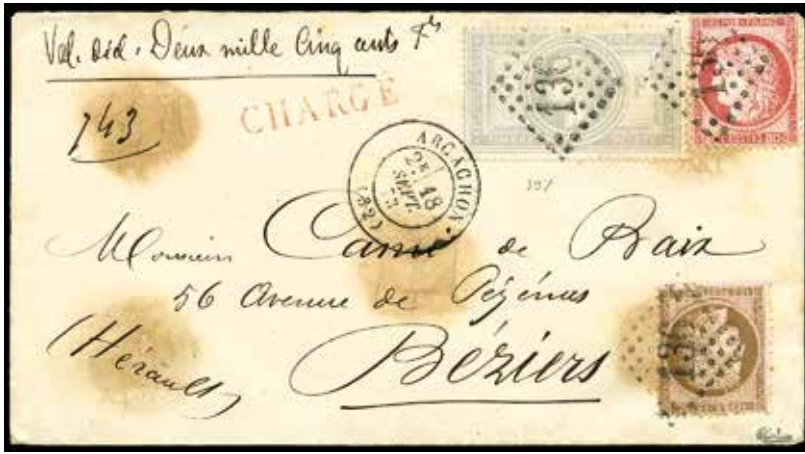 Val. décl. Deux mille Cinq cents fs
743
CHARGÉ
136
136
ARCACHON
2E
18
SEPT.
73
(32)
Monsieur Camí de Baix
56 Avenue de Pézénas
(Hérault)
Béziers
136